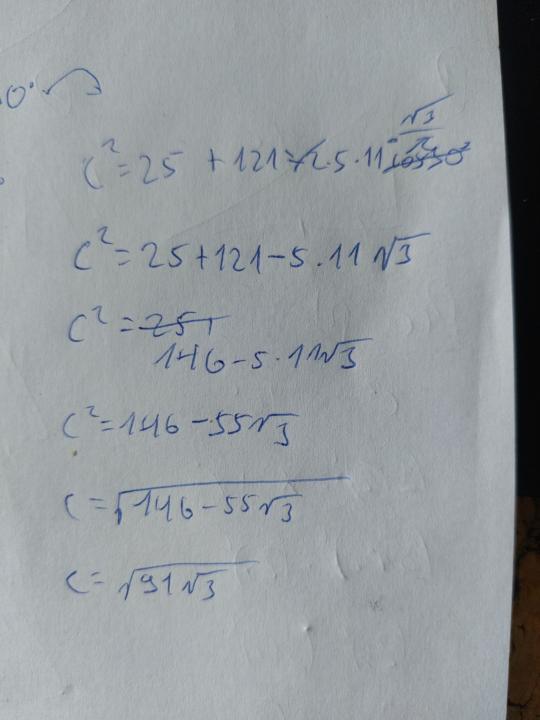 0°
c² = 25 + 121 - 2·5·11 · √3/2
c² = 25 + 121 - 5·11√3
c² = 25+
146 - 5·11√3
c² = 146 - 55√3
c = √(146 - 55√3)
c = √(91√3)